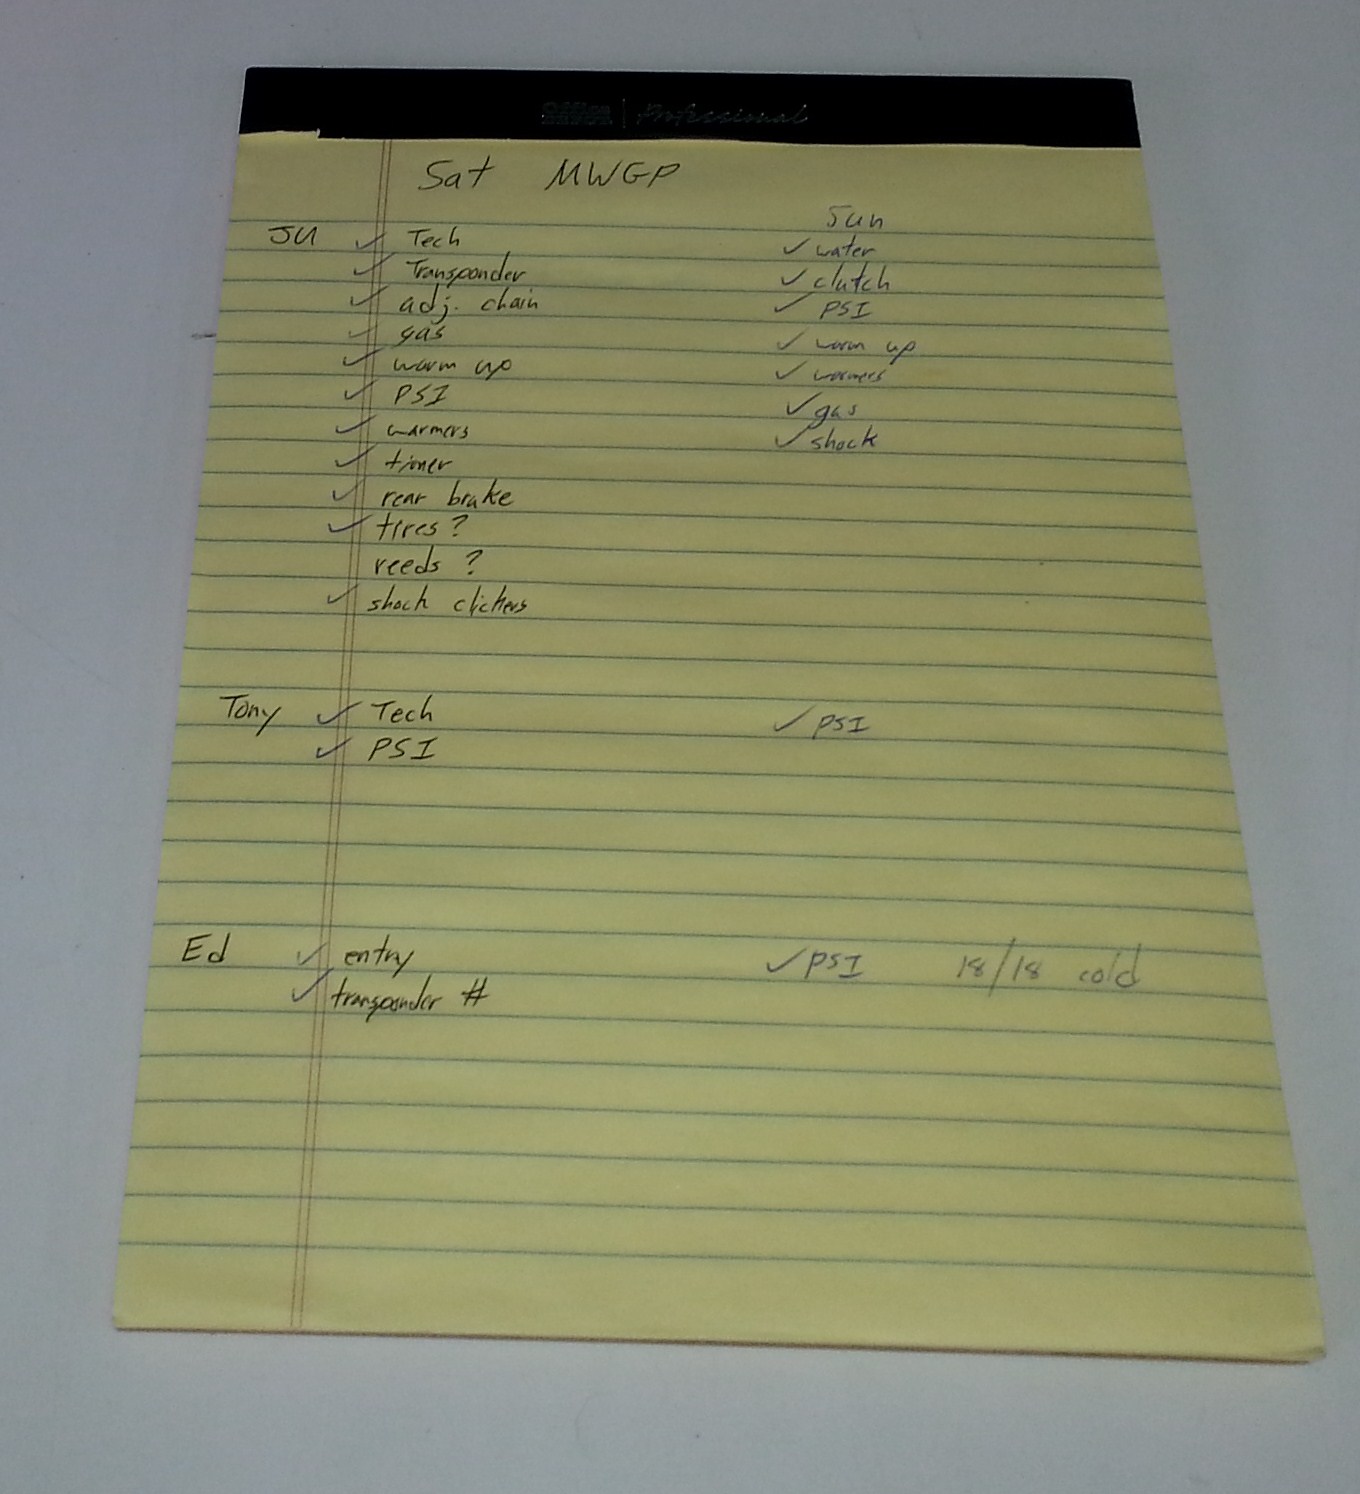 Office DEPOT | Professional
Sat MWGP
Sun
JU ✓ Tech ✓ water
✓ Transponder ✓ clutch
✓ adj. chain ✓ PSI
✓ gas ✓ warm up
✓ warm up ✓ warmers
✓ PSI ✓ gas
✓ warmers ✓ shock
✓ timer
✓ rear brake
✓ tires ?
reeds ?
✓ shock clickers
Tony ✓ Tech ✓ PSI
✓ PSI
Ed ✓ entry ✓ PSI 18/18 cold
✓ transponder #